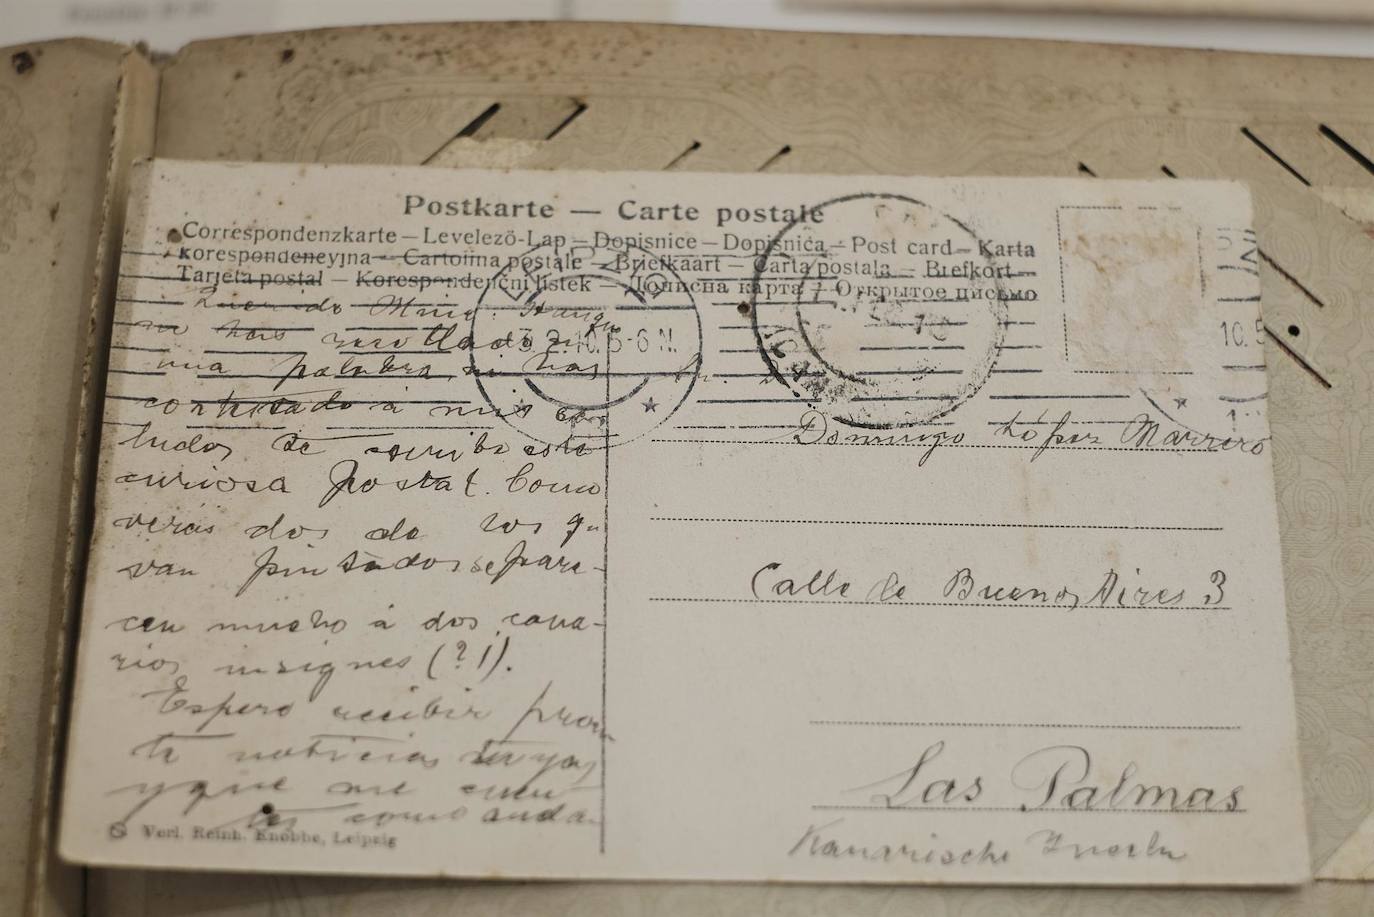 Postkarte — Carte postale
Correspondenzkarte – Levelezö-Lap – Dopisnice – Dopisnica – Post card – Karta
korespondencyjna – Cartolina postale – Briefkaart – Carta postala – Brefkort –
Tarjeta postal – Korespondenční listek – Дописна карта – Открытое письмо
Querido Mino: Aunqe
no has
una palabra, ni has
contestado á mis sa
ludos te escribo esta
curiosa postal. Como
verás dos de los qu
van pintados se pare-
cen mucho á dos cana-
rios insignes (?!).
Espero recibir pron
to noticias tuyas
y que me cuen
tes como anda
Verl. Reinh. Knobbe, Leipzig
3.2.10. 5-6 N.
10. 5
Sr. D.
Domingo López Marrero
Calle de Buenos Aires 3
Las Palmas
Kanarische Inseln